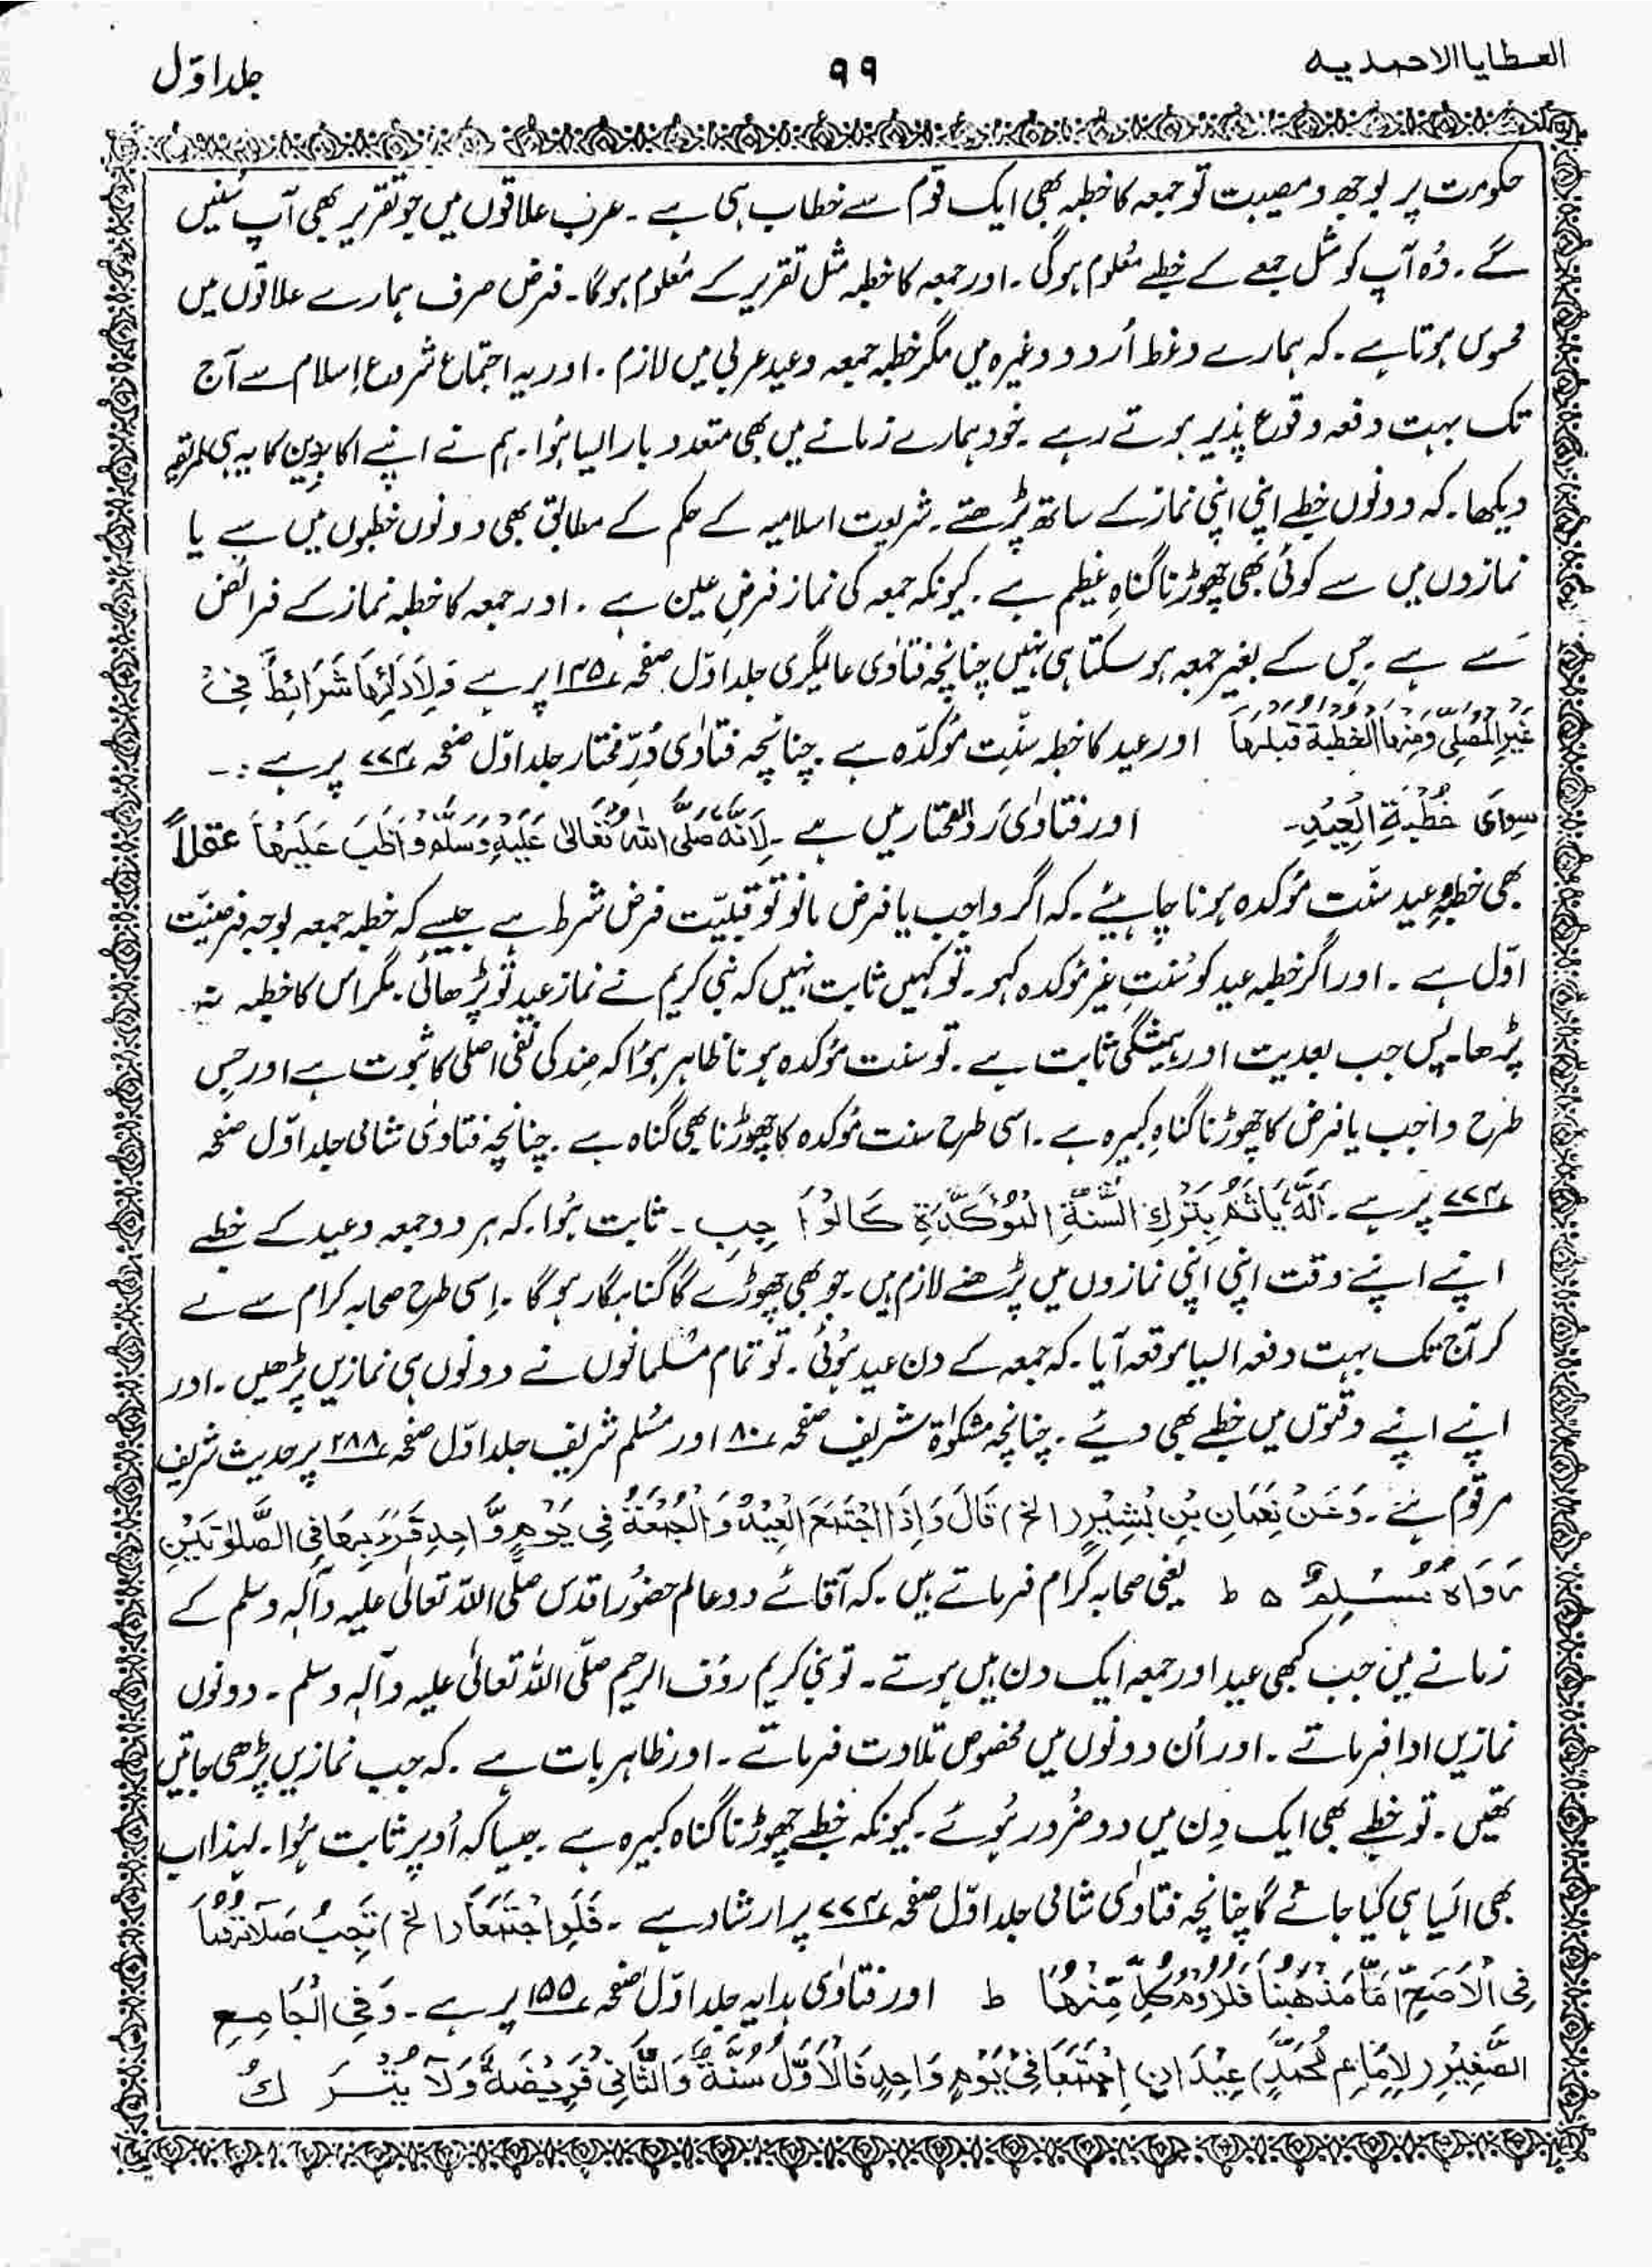 العطایا الاحمدیہ ۹۹ جلد اوّل
حکومت پر بوجھ و مصیبت تو جمعہ کا خطبہ بھی ایک قوم سے خطاب ہی ہے ۔ عرب علاقوں میں جو تقریر بھی آپ سُنیں
گے ۔ وُہ آپ کو مثل جمعے کے خطبے معُلوم ہوگی ۔ اور جمعہ کا خطبہ مثل تقریر کے معُلوم ہوگا ۔ فرض صرف ہمارے علاقوں میں
محسوس ہوتا ہے ۔ کہ ہمارے وغط اُردو وغیرہ میں مگر خطبہ جمعہ و عید عربی میں لازم ۔ اور یہ اجتماع شروع اِسلام سے آج
تک بہت دفعہ وقوع پذیر ہوتے رہے ۔ خود ہمارے زمانے میں بھی متعدد بار ایسا ہُوا ۔ ہم نے اپنے اکابرین کا یہ ہی طریقہ
دیکھا ۔ کہ دونوں خطبے اپنی اپنی نماز کے ساتھ پڑھتے ۔ شریعت اسلامیہ کے حکم کے مطابق بھی دونوں خطبوں میں سے یا
نمازوں میں سے کوئی بھی چھوڑنا گناہِ عظیم ہے ۔ کیونکہ جمعہ کی نماز فرضِ عین ہے ۔ اور جمعہ کا خطبہ نماز کے فرائض
سے ہے ۔ جس کے بغیر جمعہ ہو سکتا ہی نہیں چنانچہ فتاوٰی عالمگیری جلد اوّل صفحہ ۱۴۵ پر ہے وَلِاَدَائِهَا شَرَائِطُ فِیْ
غَیْرِ الْمُصَلِّیْ وَمِنْهَا الْخُطْبَةُ قَبْلَهَا اور عید کا خطبہ سنّتِ مؤکدّہ ہے ۔ چنانچہ فتاوٰی دُرّ مختار جلد اوّل صفحہ ۷۷۴ پر ہے :۔
سِوَای خُطْبَةِ الْعِیْدِ۔ اور فتاوٰی رَدّالمحتار میں ہے ۔ لِاَنَّهٗ صَلَّی اللهُ تَعَالٰی عَلَیْهِ وَسَلَّمَ وَاظَبَ عَلَیْهَا عقلاً
بھی خطبہءِ عید سنّت مؤکدہ ہونا چاہیئے ۔ کہ اگر واجب یا فرض مانو تو قبلیّت فرض شرط ہے جیسے کہ خطبہ جمعہ بوجہ فرضیّت
اوّل ہے ۔ اور اگر خطبہ عید کو سُنتِ غیر مؤکدہ کہو ۔ تو کہیں ثابت نہیں کہ نبی کریم نے نماز عید تو پڑھائی ۔ مگر اس کا خطبہ نہ
پڑھا ۔ پس جب بعدیت اور ہمیشگی ثابت ہے ۔ تو سنت مؤکدہ ہونا ظاہر ہوُا کہ ضِد کی نفی اصلی کا ثبوت ہے اور جس
طرح واجب یا فرض کا چھوڑنا گناہِ کبیرہ ہے ۔ اسی طرح سنت مؤکدہ کا چھوڑنا بھی گناہ ہے ۔ چنانچہ فتاوٰی شامی جلد اوّل صفحہ
۷۷۴ پر ہے ۔ اَنَّهٗ یَاثَمُ بِتَرْكِ السُّنَّةِ الْمُؤَكَّدَةِ كَالْوَاجِبِ ۔ ثابت ہُوا ۔ کہ ہر دو جمعہ و عید کے خطبے
اپنے اپنے وقت اپنی اپنی نمازوں میں پڑھنے لازم ہیں ۔ جو بھی چھوڑے گا گناہگار ہوگا ۔ اِسی طرح صحابہ کرام سے لے
کر آج تک بہت دفعہ ایسا موقعہ آیا ۔ کہ جمعہ کے دن عید ہوُئی ۔ تو تمام مسُلمانوں نے دونوں ہی نمازیں پڑھیں ۔ اور
اپنے اپنے وقتوں میں خطبے بھی دیئے ۔ چنانچہ مشکوٰۃ شریف صفحہ ۸۰ اور مسُلم شریف جلد اوّل صفحہ ۲۸۸ پر حدیث شریف
مرقوم ہے ۔ وَعَنْ نِعَمَانِ بْنِ بَشِیْرٍ (الخ) قَالَ وَ اِذَا اجْتَمَعَ الْعِیْدُ وَ الْجُمُعَةُ فِیْ یَوْمٍ وَّاحِدٍ قَرَءَ بِهِمَا فِی الصَّلٰوتَیْنِ
رَوَاهُ مُسْلِمٌ ۵ ط یعنی صحابہ کرام فرماتے ہیں ۔ کہ آقائے دو عالم حضُور اقدس صلّی اللہ تعالٰی علیہ وآلہٖ وسلم کے
زمانے میں جب کبھی عید اور جمعہ ایک دن میں ہوتے ۔ تو نبی کریم رؤف الرحیم صلّی اللہ تعالٰی علیہ وآلہٖ وسلم ۔ دونوں
نمازیں ادا فرماتے ۔ اور اُن دونوں میں مخصوص تلاوت فرماتے ۔ اور ظاہر بات ہے ۔ کہ جب نمازیں پڑھی جاتیں
تھیں ۔ تو خطبے بھی ایک دِن میں دو ضرُور ہُوئے ۔ کیونکہ خطبے چھوڑنا گناہ کبیرہ ہے ۔ جیسا کہ اُوپر ثابت ہُوا ۔ لہٰذا اب
بھی اَیسا ہی کیا جائے گا چنانچہ فتاوٰی شامی جلد اوّل صفحہ ۷۷۴ پر ارشاد ہے ۔ فَلَوِ اجْتَمَعَا (الخ) تَجِبُ صَلَاتُهُمَا
فِی الْاَصَحِّ اَمَّا مَذْهَبُنَا فَلُزُوْمُ كُلٍّ مِّنْهُمَا ط اور فتاوٰی ہدایہ جلد اوّل صفحہ ۱۵۵ پر ہے ۔ وَفِی الْجَامِعِ
الصَّغِیْرِ (لِاِمَامِ مُحَمَّدٍ) عِیْدَانِ اِجْتَمَعَا فِیْ یَوْمٍ وَاحِدٍ فَالْاَوَّلُ سُنَّةٌ وَالثَّانِیْ فَرِیْضَةٌ وَلَا یُتْرَكُ